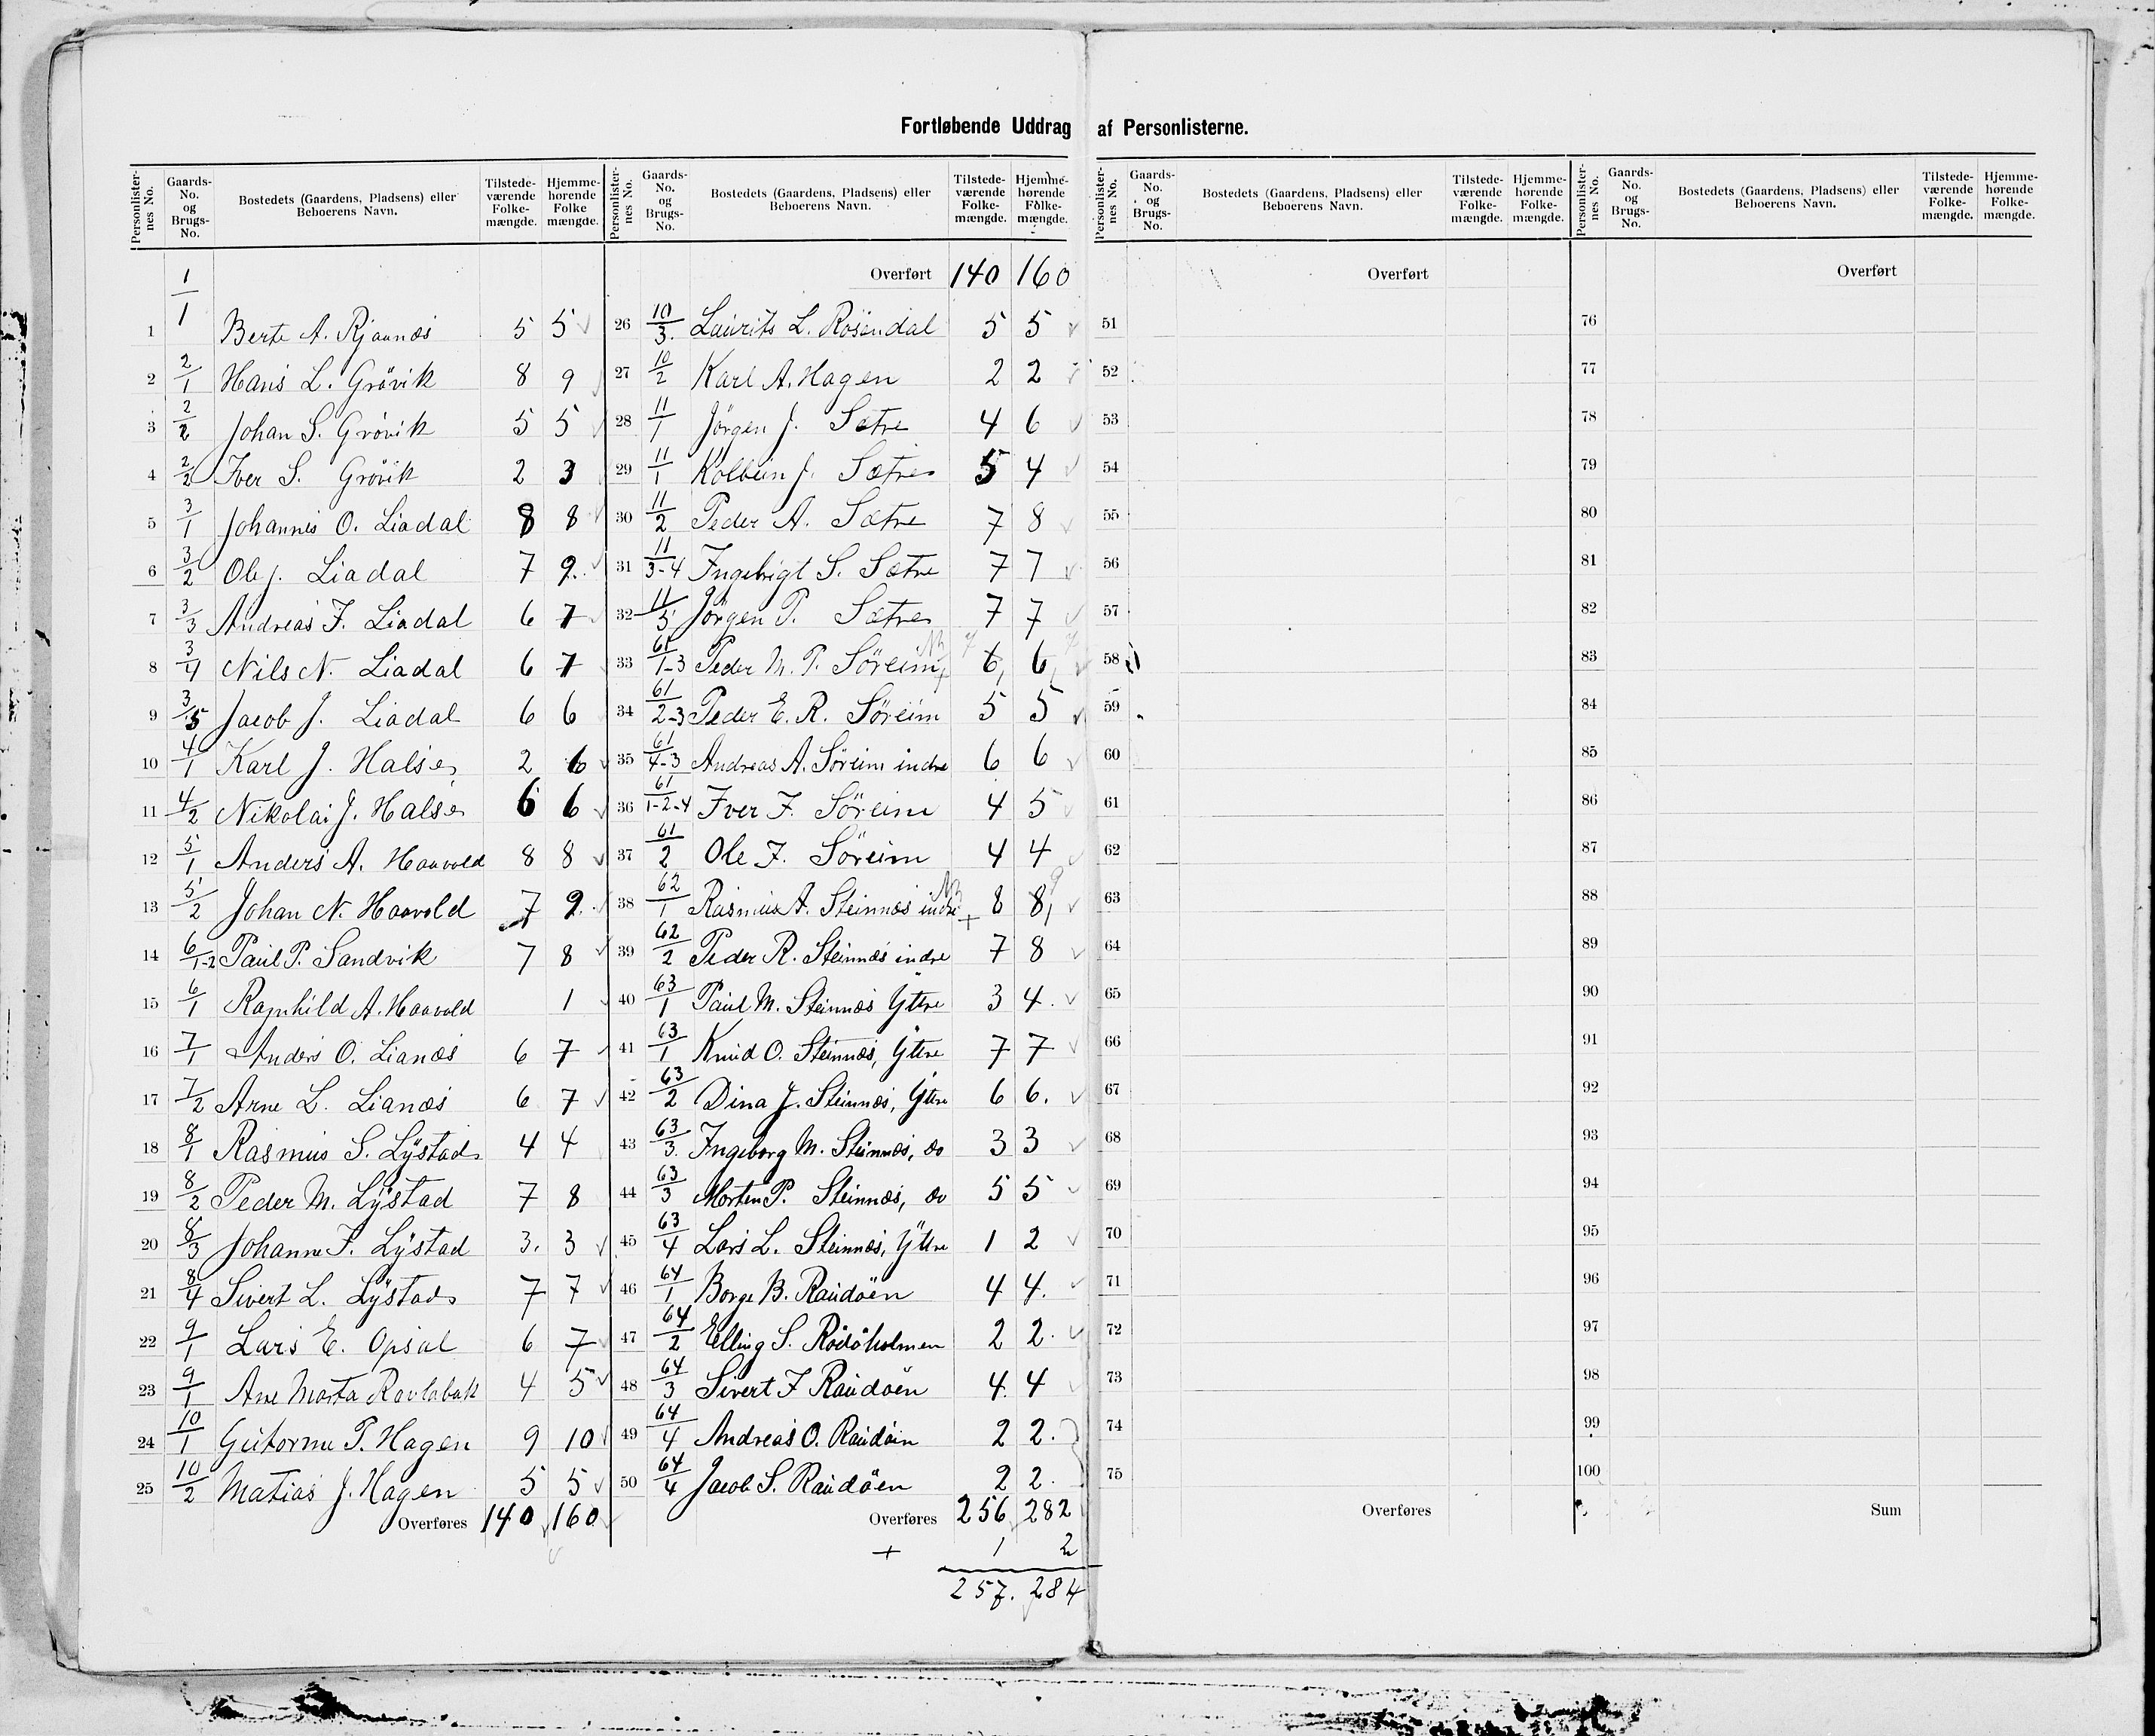 Fortløbende Uddrag af Personlisterne.
Personlisternes No. Gaards-No. og Brugs-No. Bostedets (Gaardens, Pladsens) eller Beboerens Navn. Tilstedeværende Folkemængde. Hjemmehørende Folkemængde.
1 1/1 Berte A. Rjaanæs 5 5
2 2/1 Hans L. Grøvik 8 9
3 2/2 Johan S. Grøvik 5 5
4 2/2 Iver S. Grøvik 2 3
5 3/1 Johannes O. Liadal 8 8
6 3/2 Ole J. Liadal 7 9.
7 3/3 Andreas F. Liadal 6 7
8 3/4 Nils N. Liadal 6 7
9 3/5 Jacob J. Liadal 6 6
10 4/1 Karl J. Halse 2 6
11 4/2 Nikolai J. Halse 6 6
12 5/1 Anders A. Haavold 8 8
13 5/2 Johan N. Haavold 7 9.
14 6/1-2 Paul P. Sandvik 7 8
15 6/1 Ragnhild A. Haavold 1
16 7/1 Anders O. Lianæs 6 7
17 7/2 Arne L. Lianæs 6 7
18 8/1 Rasmus S. Lystad 4 4
19 8/2 Peder M. Lystad 7 8
20 8/3 Johanne F. Lystad 3. 3
21 8/4 Sivert L. Lystad 7 7
22 9/1 Lars E. Opsal 6 7
23 9/1 Ane Marta 4 5
24 10/1 Gutorm P. Hagen 9 10
25 10/2 Matias J. Hagen 5 5
Overføres 140 160
Personlisternes No. Gaards-No. og Brugs-No. Bostedets (Gaardens, Pladsens) eller Beboerens Navn. Tilstedeværende Folkemængde. Hjemmehørende Folkemængde.
Overført 140 160
26 10/3. Laurits L. Rosendal 5 5
27 10/2 Karl A. Hagen 2 2
28 11/1 Jörgen J. Sætre 4 6
29 11/1 Kolbein J. Sætre 5 4
30 11/2 Peder A. Sætre 7 8
31 11/3-4 Ingebrigt S. Sætre 7 7
32 11/5 Jörgen P. Sætre 7 7
33 61/1-3 Peder M. P. Söreim NB 7 6, 6, 7
34 61/2-3 Peder E. R. Søreim 5 5
35 61/4-3 Andreas A. Søreim indre 6 6
36 61/1-2-4 Iver F. Söreim 4 5
37 61/2 Ole F. Söreim 4 4
38 62/1 Rasmus A. Steinnæs indre NB + 8 8, 9
39 62/2 Peder R. Steinnæs indre 7 8
40 63/1 Paul M. Steinnæs Yttre 3 4.
41 63/1 Knud O. Steinnæs, Yttre 7 7
42 63/2 Dina J. Steinnæs, Yttre 6 6.
43 63/3. Ingeborg M. Steinnæs, do 3 3
44 63/3 Morten P. Steinnæs, do 5 5
45 63/4 Lars L. Steinnæs, Yttre 1 2
46 64/1 Borge B. Raudöen 4 4.
47 64/2 Elling S. Rödöholmen 2 2.
48 64/3 Sivert F Raudöen 4. 4
49 64/4 Andreas O. Raudöin 2 2.
50 64/4 Jacob S. Raudöen 2 2.
Overføres 256 282
+ 1 2
257. 284
Personlisternes No. Gaards-No. og Brugs-No. Bostedets (Gaardens, Pladsens) eller Beboerens Navn. Tilstedeværende Folkemængde. Hjemmehørende Folkemængde.
Overført
51
52
53
54
55
56
57
58
59
60
61
62
63
64
65
66
67
68
69
70
71
72
73
74
75
Overføres
Personlisternes No. Gaards-No. og Brugs-No. Bostedets (Gaardens, Pladsens) eller Beboerens Navn. Tilstedeværende Folkemængde. Hjemmehørende Folkemængde.
Overført
76
77
78
79
80
81
82
83
84
85
86
87
88
89
90
91
92
93
94
95
96
97
98
99
100
Sum